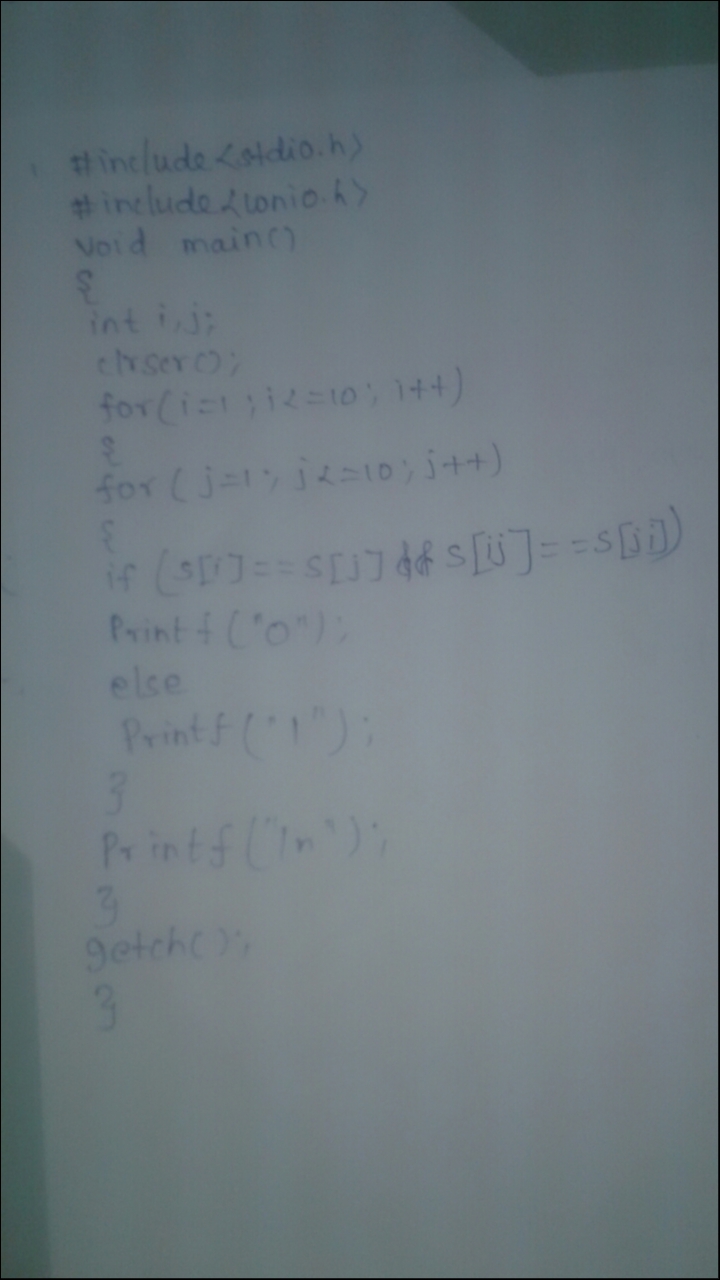 #include<stdio.h>
#include<conio.h>
void main()
{
int i,j;
clrscr();
for(i=1;i<=10;i++)
{
for(j=1;j<=10;j++)
{
if(s[i]==s[j]&&s[ij]==s[ji])
Printf("0");
else
Printf("1");
}
Printf("/n");
}
getch();
}